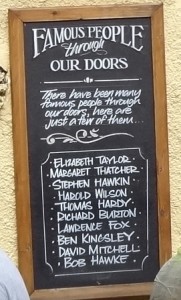 FAMOUS PEOPLE
through
OUR DOORS
There have been many
famous people through
our doors, here are
just a few of them...
ELIZABETH TAYLOR
MARGARET THATCHER
STEPHEN HAWKIN
HAROLD WILSON
THOMAS HARDY
RICHARD BURTON
LAWRENCE FOX
BEN KINGSLEY
DAVID MITCHELL
BOB HAWKE